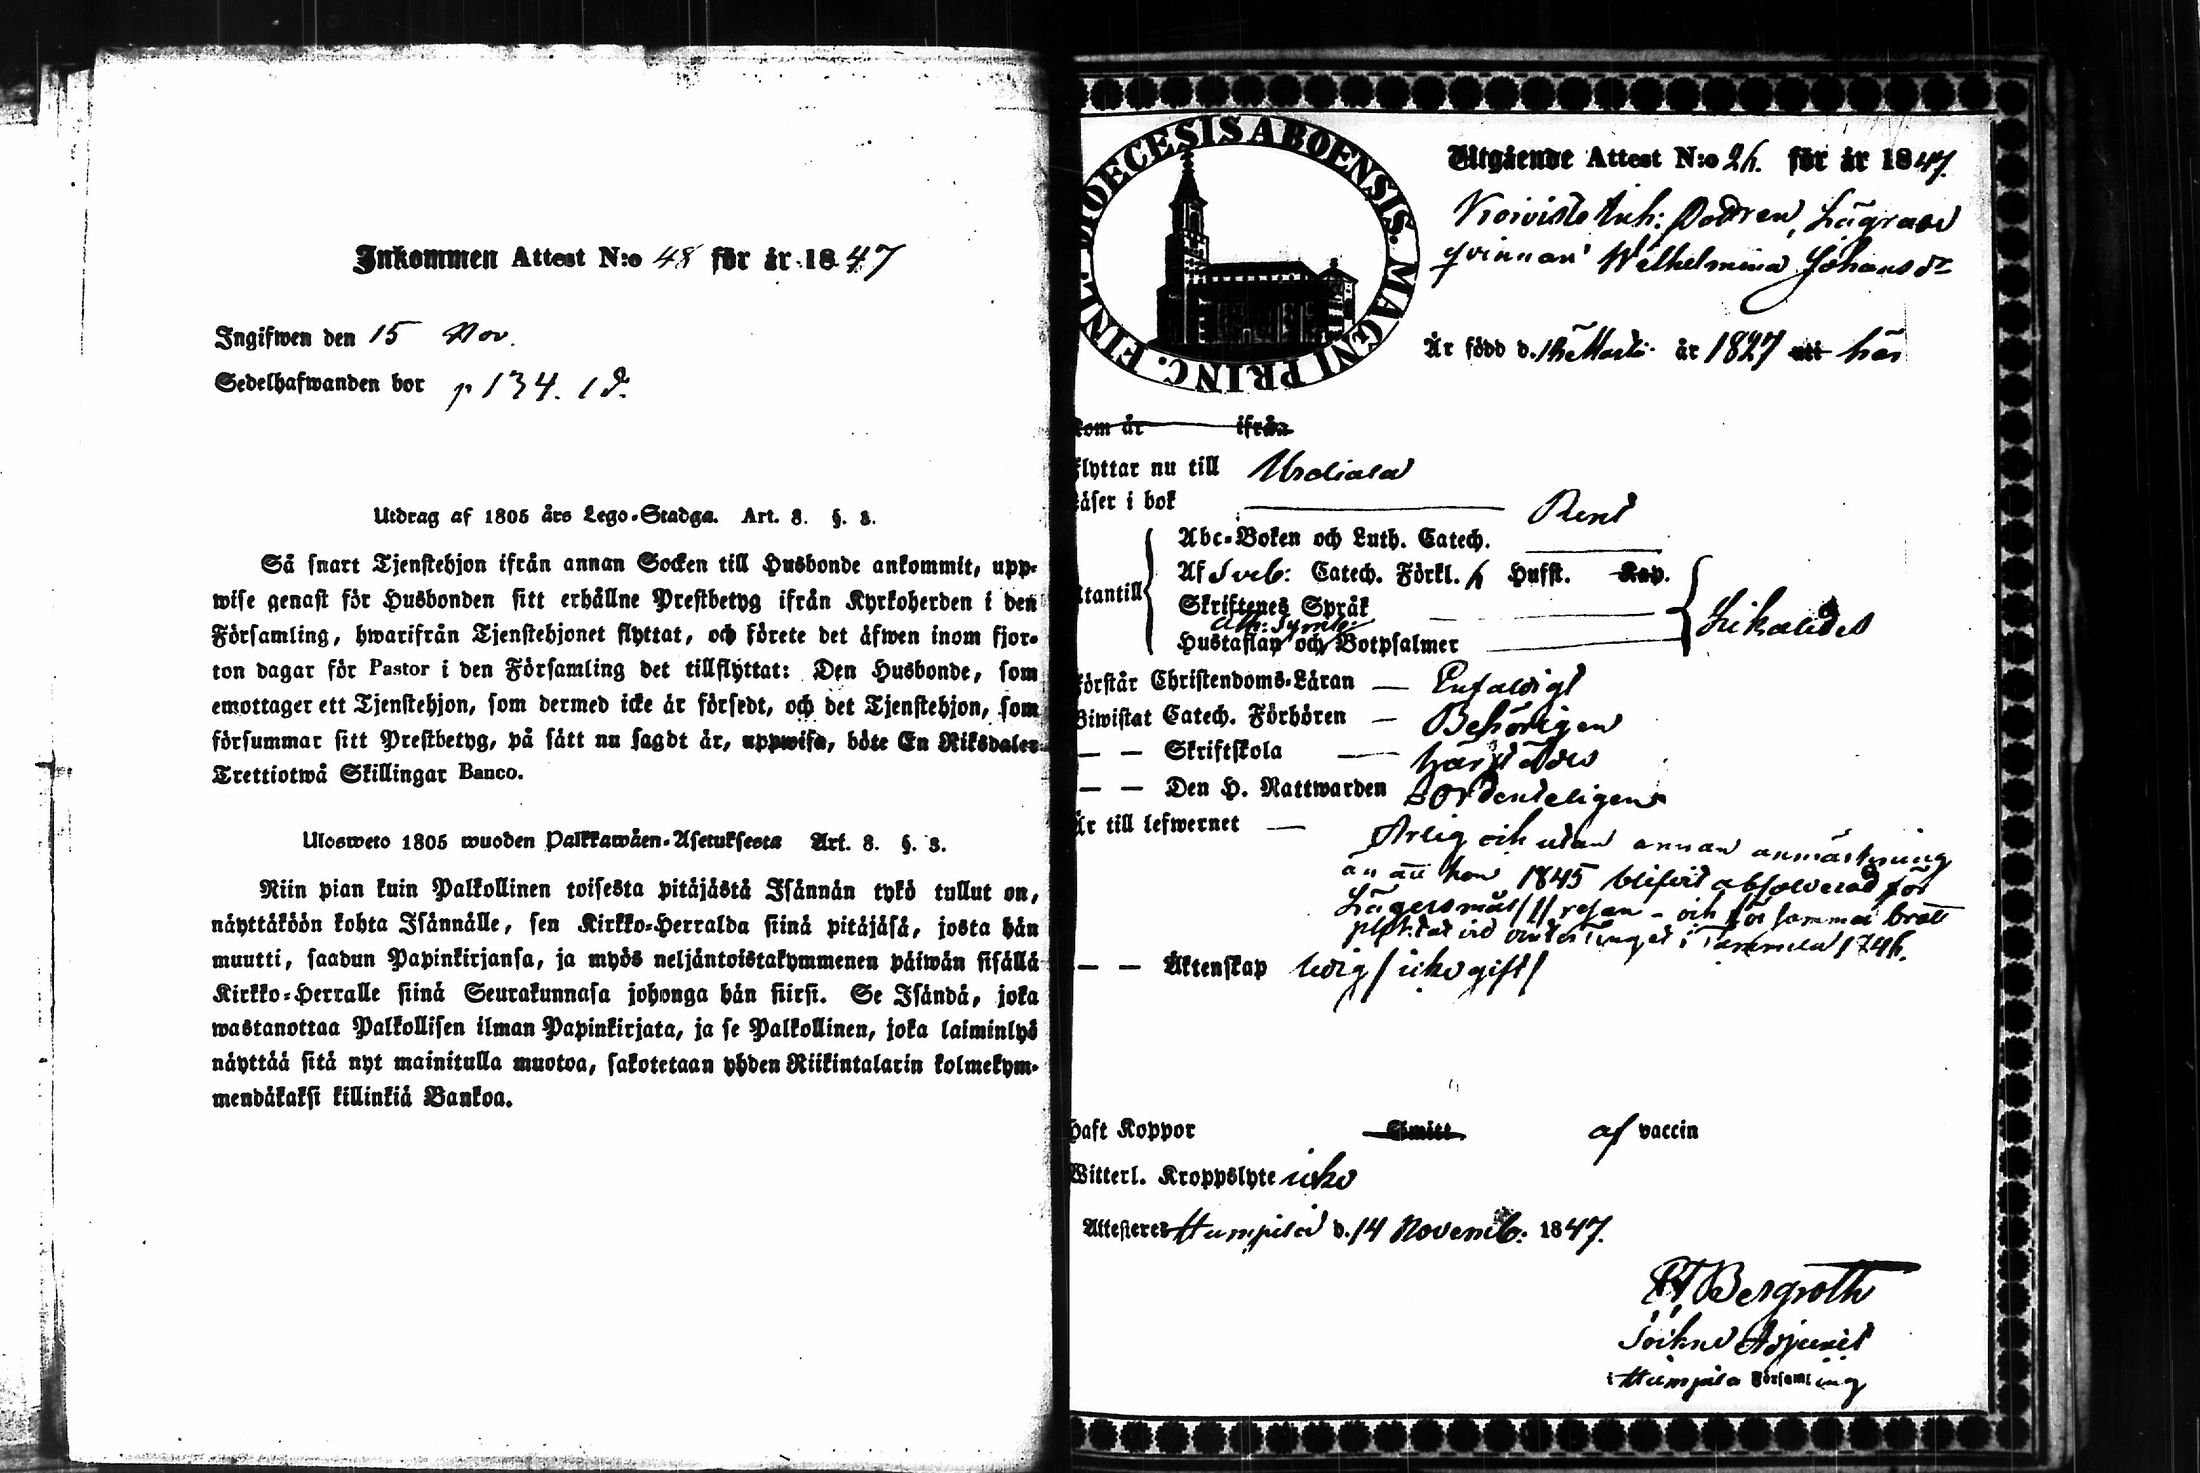 Inkommen Attest N:o 48 för år 1847
Ingifwen den 15 Nov.
Sedelhafwanden bor p 134. 1 d.
Utdrag af 1805 års Lego-Stadga. Art. 8. §. 3.
Så snart Tjenstehjon ifrån annan Socken till Husbonde ankommit, upp-
wise genast för Husbonden sitt erhållne Prestbetyg ifrån Kyrkoherden i den
Församling, hwarifrån Tjenstehjonet flyttat, och förete det äfwen inom fjor-
ton dagar för Pastor i den Församling det tillflyttat: Den Husbonde, som
emottager ett Tjenstehjon, som dermed icke är försedt, och det Tjenstehjon, som
försummar sitt Prestbetyg, på sätt nu sagdt är, uppwisa, böte En Riksdaler
Trettiotwå Skillingar Banco.
Ulosweto 1805 wuoden Palkkawäen-Asetuksesta Art. 8. §. 3.
Niin pian kuin Palkollinen toisesta pitäjästä Isännän tykö tullut on,
näyttäköön kohta Isännälle, sen Kirkko-Herralda siinä pitäjäsä, josta hän
muutti, saadun Papinkirjansa, ja myös neljäntoistakymmenen päiwän sisällä
Kirkko-Herralle siinä Seurakunnasa johonga hän siirsi. Se Isändä, joka
wastanottaa Palkollisen ilman Papinkirjata, ja se Palkollinen, joka laiminlyö
näyttää sitä nyt mainitulla muotoa, sakotetaan yhden Riikintalarin kolmekym-
mendäkaksi killinkiä Bankoa.
DIOECESIS ABOENSIS. MAGNI PRINC. FINL.
Utgående Attest N:o 26. för år 1847.
Koivisto Inh: Dottren, Lägrade
qvinnan Wilhelmina Johansdr
Är född d. 16 Marti år 1827 uti här
kom år ifrån
flyttar nu till Urdiala
läser i bok Rent
Abc-Boken och Luth. Catech.
Af Sveb: Catech. Förkl. 6 Husst. Kap.
utantill
Skriftenes Språk
Ath: Symb:
Hustaflan och Botpsalmer
Likaledes
förstår Christendoms-Läran Enfaldigt
Biwistat Catech. Förhören Behörigen
Skriftskola härstädes
Den H. Nattwarden ordenteligen
Är till lefwernet Ärlig och utan annan anmärkning
än att hon 1845 blifvit absolverad för
Lägersmål /1/ resan - och för samma brott
pliktat vid vintertinget i Tammela 1846.
Äktenskap ledig / icke gift /
haft Koppor Smitt af vaccin
Witterl. Kroppslyte icke
Attesteres Humpila d. 14 Novemb: 1847.
Bergroth
Sockne Adjunct
i Humpila Församling